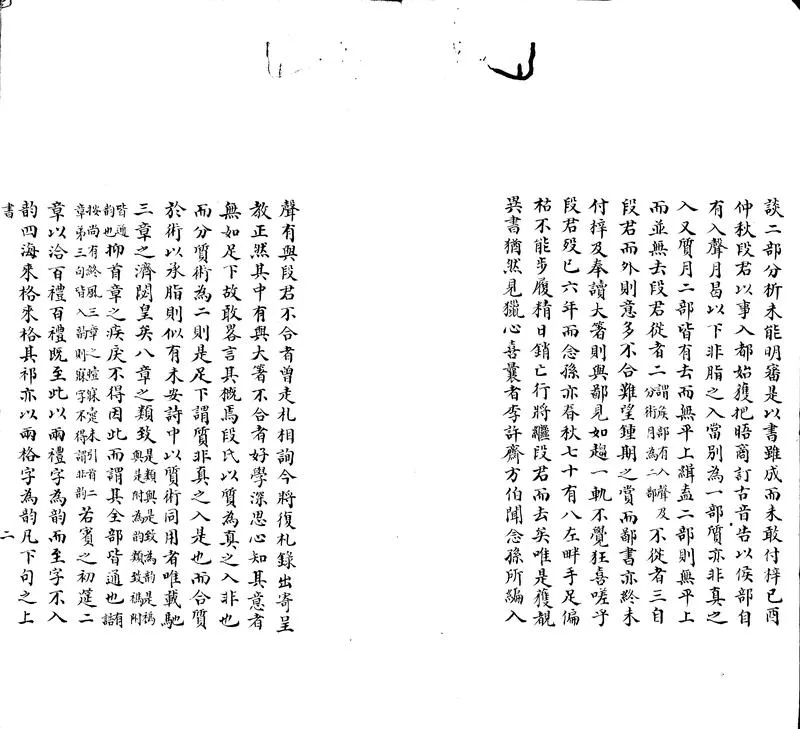 談二部分析未能明審是以書雖成而未敢付梓己酉
仲秋段君以事入都始獲把晤商訂古音告以侯部自
有入聲月曷以下非脂之入當別為一部質亦非真之
入又質月二部皆有去而無平上緝盍二部則無平上
而並無去段君從者二謂侯部有入聲及分術月為二部不從者三自
段君而外則意多不合難望鍾期之賞而鄙書亦終未
付梓及奉讀大箸則與鄙見如趨一軌不覺狂喜嗟乎
段君歿已六年而念孫亦春秋七十有八左畔手足偏
枯不能步履精日銷亡行將繼段君而去矣唯是獲覩
異書猶然見獵心喜曩者李許齋方伯聞念孫所編入
聲有與段君不合者曾走札相詢今將復札錄出寄呈
教正然其中有與大箸不合者好學深思心知其意者
無如足下故敢畧言其概焉段氏以質為真之入非也
而分質術為二則是足下謂質非真之入是也而合質
於術以承脂則似有未安詩中以質術同用者唯載馳
三章之濟閟皇矣八章之類致是類與是致為韵是禡與是附為韵類致禡附
皆通韵也抑首章之疾戾不得因此而謂其全部皆通也有詰
按尚有終風三章之曀寐寁未引首二章第三句皆入韵則寐字不得謂非韵若賓之初筵二
章以洽百禮百禮既至此以兩禮字為韵而至字不入
韵四海來格來格其祁亦以兩格字為韵凡下句之上
書
二